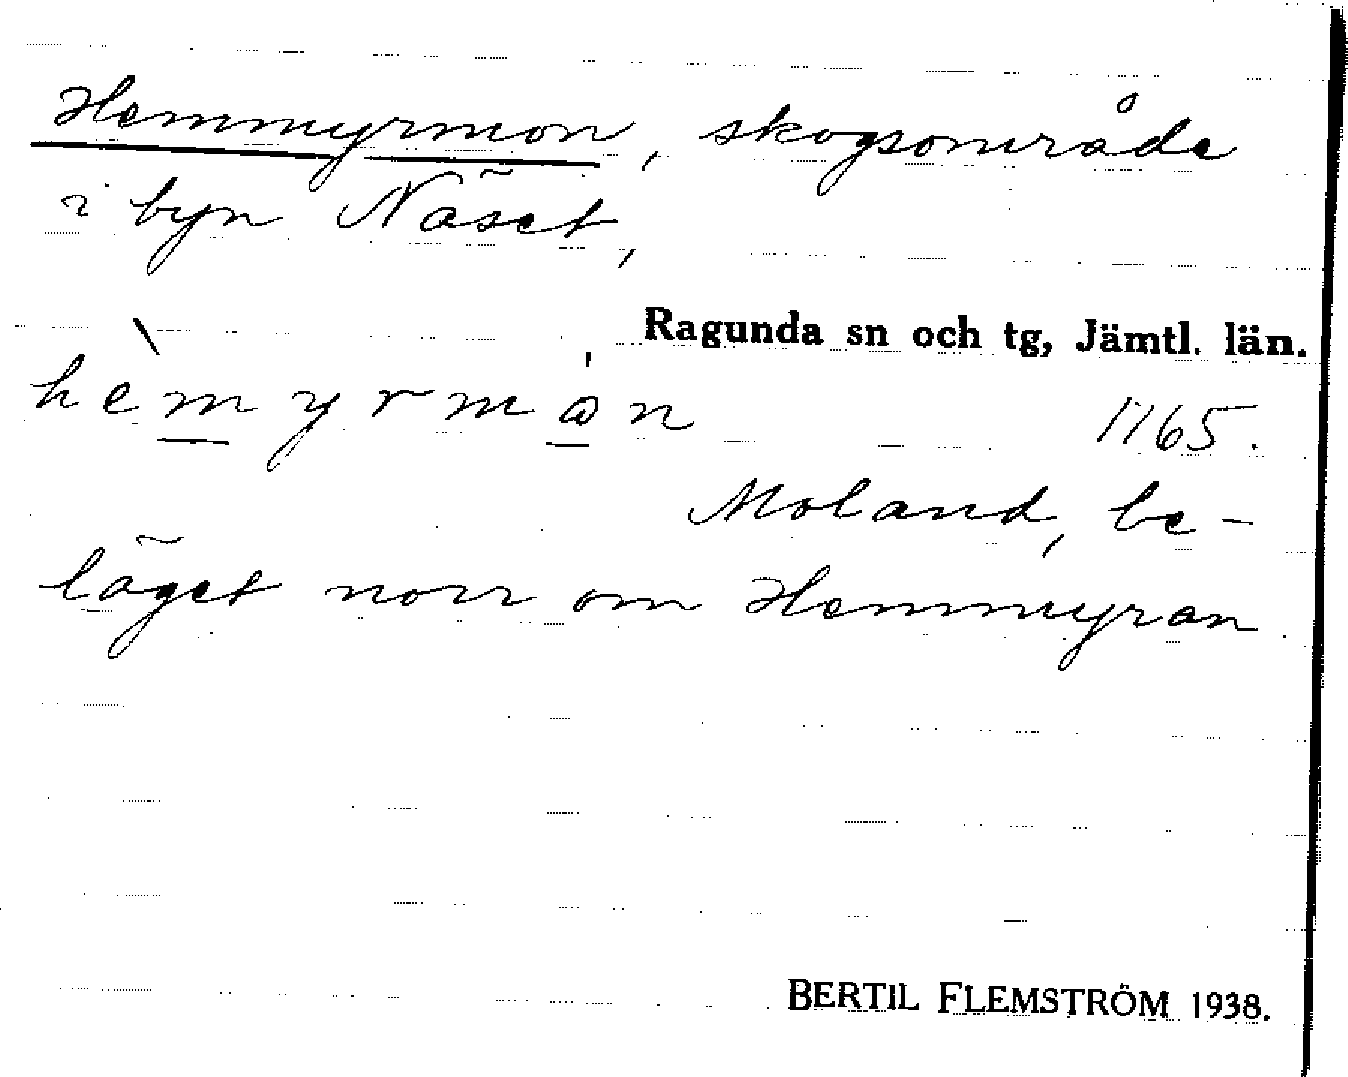 Hemmyrmon, skogsområde
i byn Näset,
Ragunda sn och tg, Jämtl. län.
hèmyrmån
1165.
Moland, be-
läget norr om Hemmyran
BERTIL FLEMSTRÖM 1938.